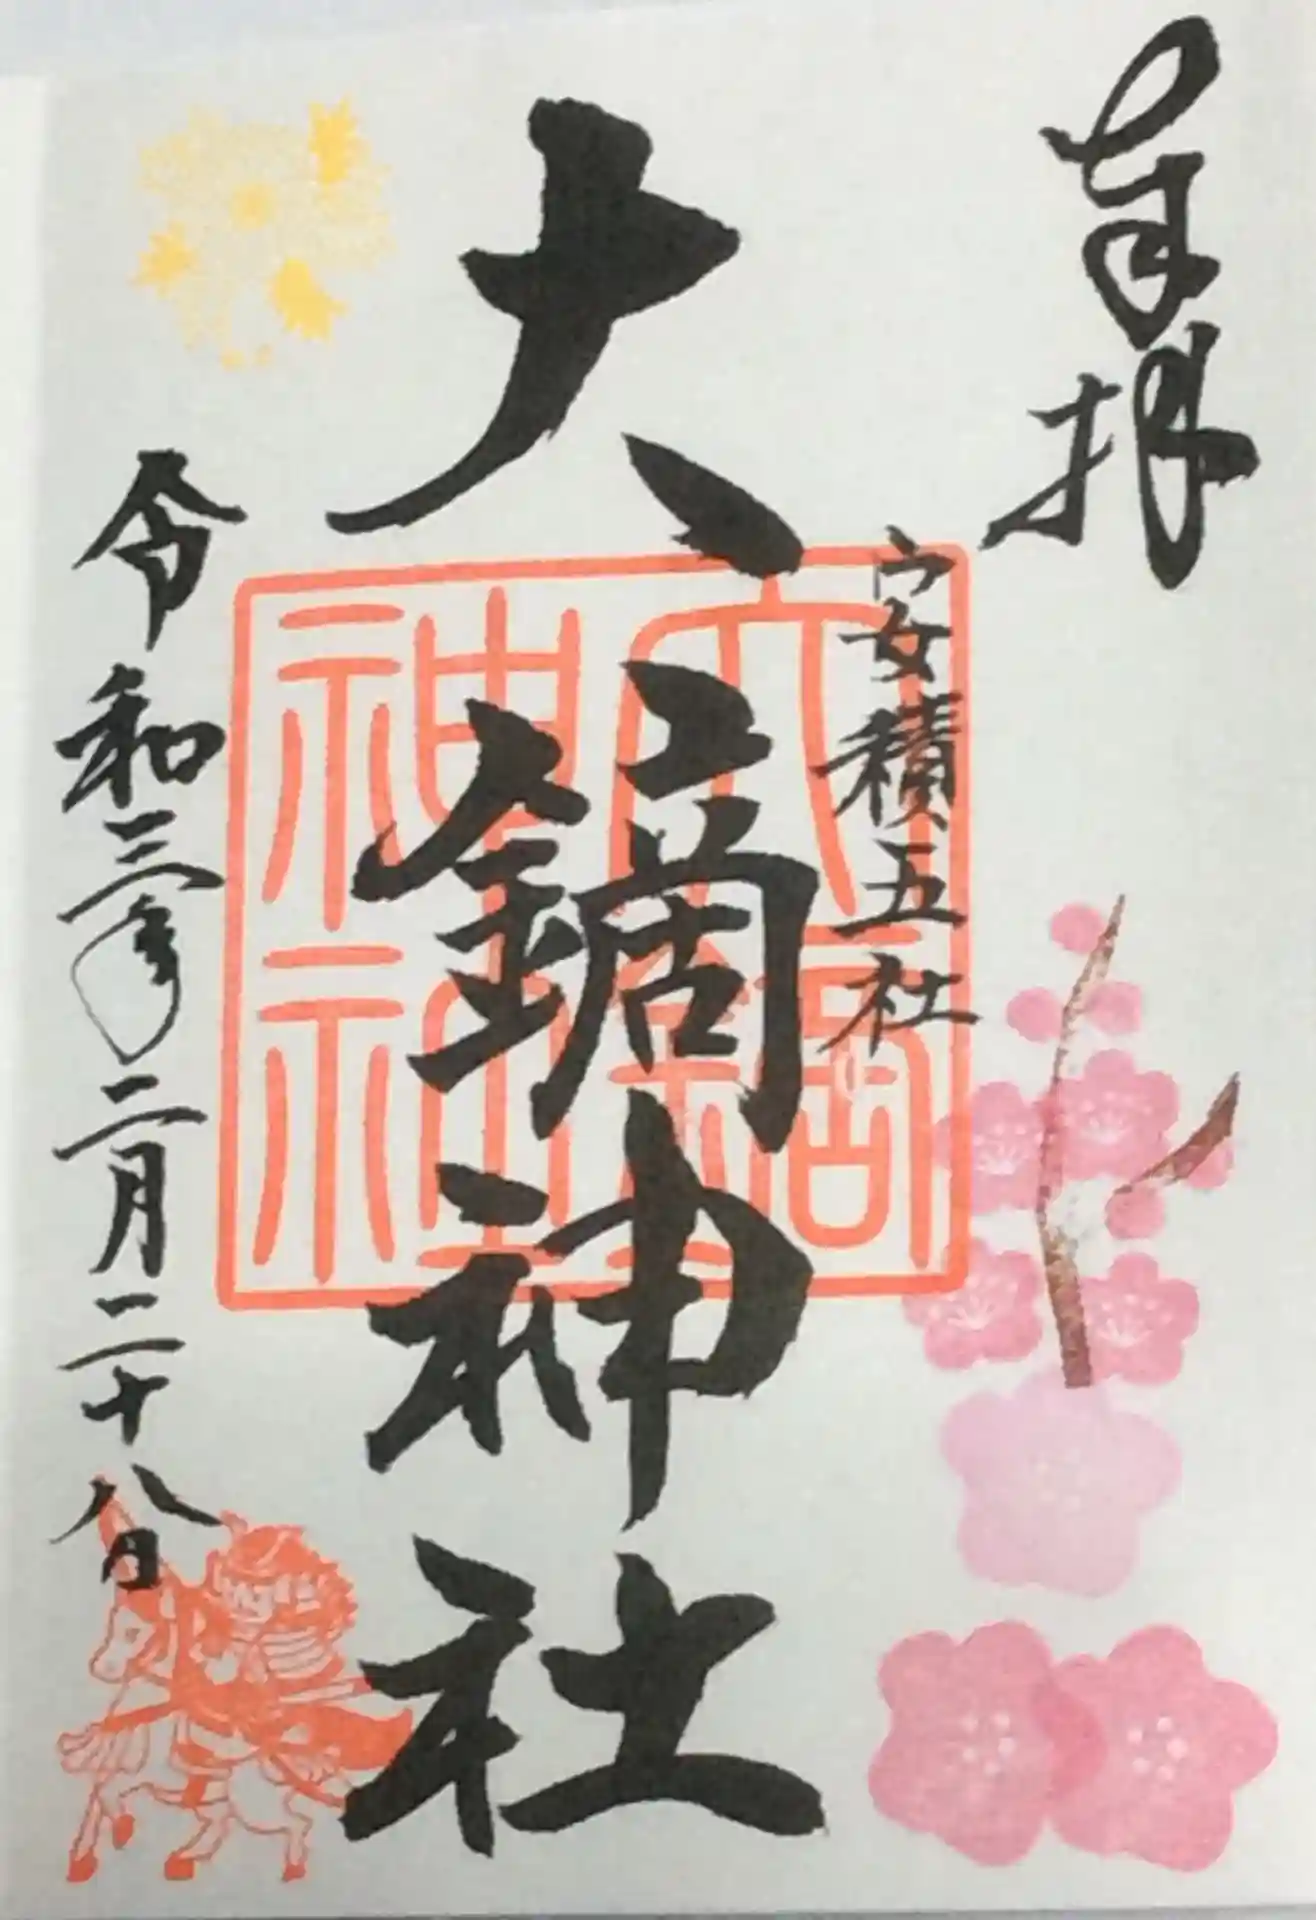 奉拝
安積五社
大鏑神社
大鏑神社
令和三年二月二十八日